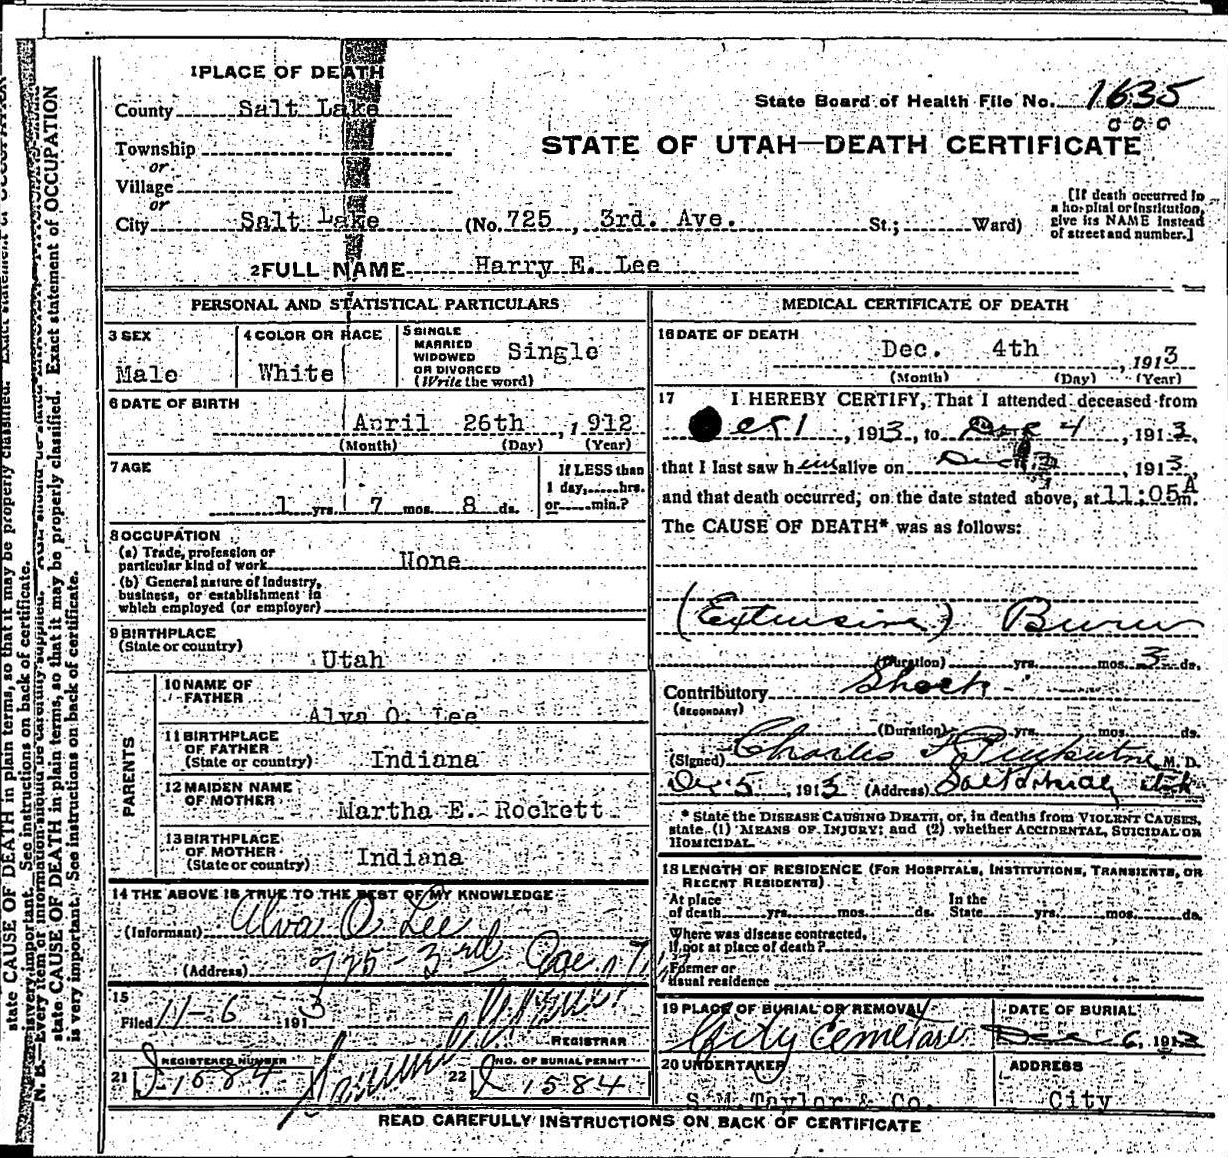 1 PLACE OF DEATH
County Salt Lake
Township
or
Village
or
City Salt Lake (No. 725, 3rd. Ave. St.; Ward)
State Board of Health File No. 1635
000
STATE OF UTAH—DEATH CERTIFICATE
[If death occurred in
a hospital or institution,
give its NAME instead
of street and number.]
2 FULL NAME Harry E. Lee
PERSONAL AND STATISTICAL PARTICULARS
3 SEX
Male
4 COLOR OR RACE
White
5 SINGLE
MARRIED
WIDOWED
OR DIVORCED
(Write the word)
Single
6 DATE OF BIRTH
April 26th, 1912
(Month) (Day) (Year)
7 AGE
1 yrs. 7 mos. 8 ds.
If LESS than
1 day, hrs.
or min.?
8 OCCUPATION
(a) Trade, profession or
particular kind of work None
(b) General nature of industry,
business, or establishment in
which employed (or employer)
9 BIRTHPLACE
(State or country)
Utah
PARENTS
10 NAME OF
FATHER
Alva O. Lee
11 BIRTHPLACE
OF FATHER
(State or country) Indiana
12 MAIDEN NAME
OF MOTHER Martha E. Rockett
13 BIRTHPLACE
OF MOTHER
(State or country) Indiana
14 THE ABOVE IS TRUE TO THE BEST OF MY KNOWLEDGE
(Informant) Alva O Lee
(Address) 725 - 3rd
15
Filed 11-6 1913
REGISTRAR
21 REGISTERED NUMBER
1584
22 NO. OF BURIAL PERMIT
1584
MEDICAL CERTIFICATE OF DEATH
16 DATE OF DEATH
Dec. 4th, 1913
(Month) (Day) (Year)
17 I HEREBY CERTIFY, That I attended deceased from
1913, to 4, 1913,
that I last saw h alive on 1913,
and that death occurred, on the date stated above, at 11:05 A m.
The CAUSE OF DEATH* was as follows:
(Extensive) Burns
(Duration) yrs. mos. 3 ds.
Contributory Shock
(SECONDARY)
(Duration) yrs. mos. ds.
(Signed) Charles F. M. D.
Dec 5, 1913 (Address)
* State the DISEASE CAUSING DEATH, or, in deaths from VIOLENT CAUSES,
state (1) MEANS OF INJURY; and (2) whether ACCIDENTAL, SUICIDAL OR
HOMICIDAL.
18 LENGTH OF RESIDENCE (FOR HOSPITALS, INSTITUTIONS, TRANSIENTS, OR
RECENT RESIDENTS)
At place
of death yrs. mos. ds.
In the
State yrs. mos. ds.
Where was disease contracted,
if not at place of death?
Former or
usual residence
19 PLACE OF BURIAL OR REMOVAL
City Cemetary
DATE OF BURIAL
Dec 6, 1913
20 UNDERTAKER
S.M. Taylor & Co.
ADDRESS
City
READ CAREFULLY INSTRUCTIONS ON BACK OF CERTIFICATE
N. B.—Every item of information should be carefully supplied. AGE should be
state CAUSE OF DEATH in plain terms, so that it may be properly classified. Exact statement of OCCUPATION
is very important. See instructions on back of certificate.